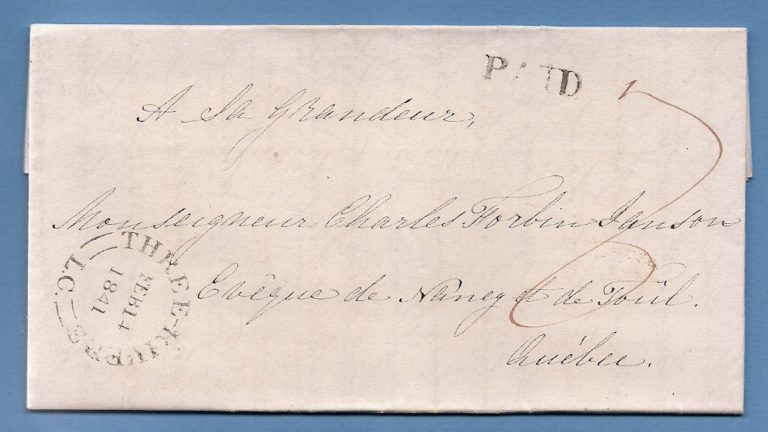 PAID
A Sa Grandeur,
Monseigneur Charles Forbin Janson
Evêque de Nancy et de Toûl.
Québec.
THREE-RIVERS L.C.
FEB 14
1841